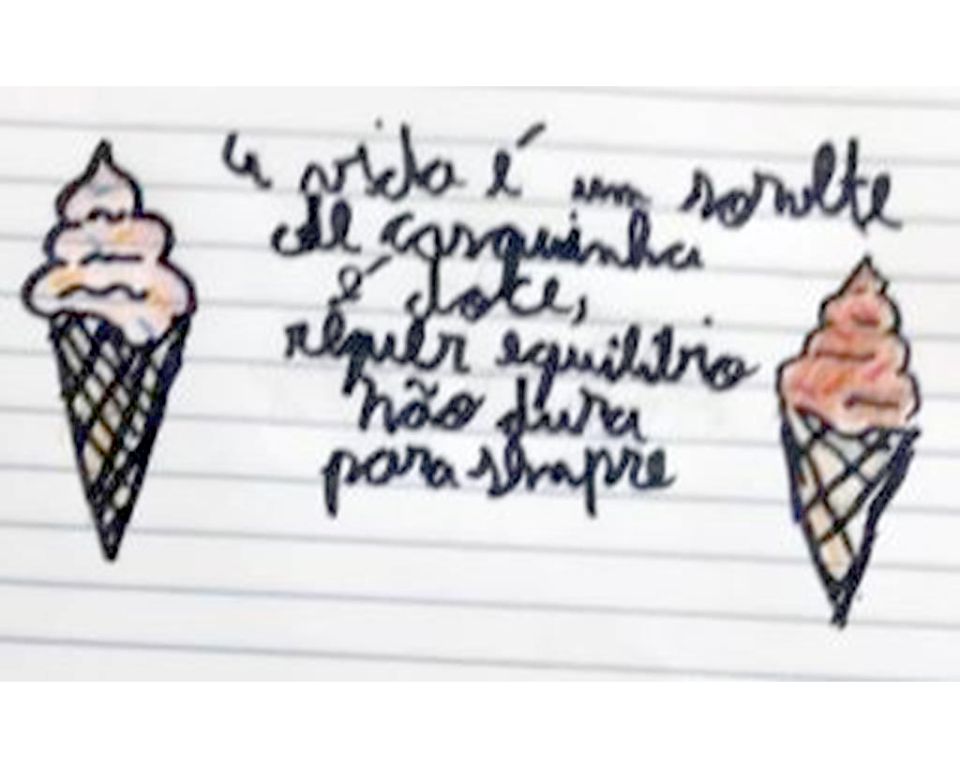 a vida é um sorvete
de casquinha
é doce,
requer equilíbrio
não dura
para sempre